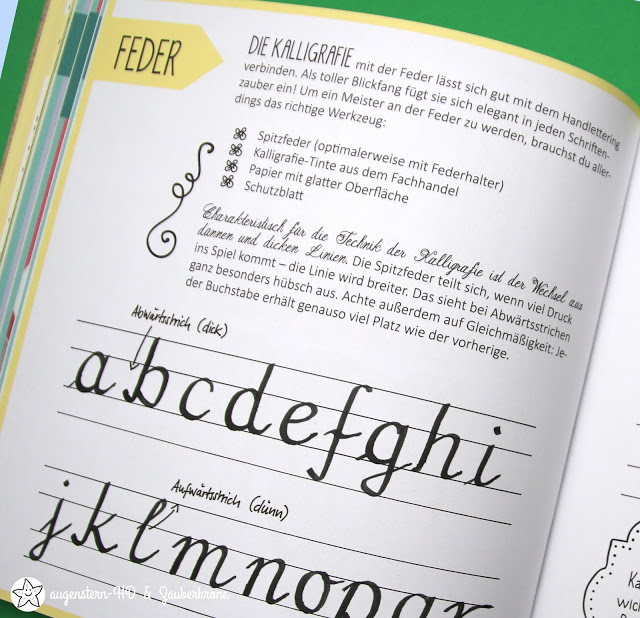 FEDER
DIE KALLIGRAFIE mit der Feder lässt sich gut mit dem Handlettering
verbinden. Als toller Blickfang fügt sie sich elegant in jeden Schriften-
zauber ein! Um ein Meister an der Feder zu werden, brauchst du aller-
dings das richtige Werkzeug:
Spitzfeder (optimalerweise mit Federhalter)
Kalligrafie-Tinte aus dem Fachhandel
Papier mit glatter Oberfläche
Schutzblatt
Charakteristisch für die Technik der Kalligrafie ist der Wechsel aus
dünnen und dicken Linien. Die Spitzfeder teilt sich, wenn viel Druck
ins Spiel kommt – die Linie wird breiter. Das sieht bei Abwärtsstrichen
ganz besonders hübsch aus. Achte außerdem auf Gleichmäßigkeit: Je-
der Buchstabe erhält genauso viel Platz wie der vorherige.
Abwärtsstrich (dick)
abcdefghi
Aufwärtsstrich (dünn)
jklmnopqr
Ka
wich
augenstern-HD & Zauberkrone